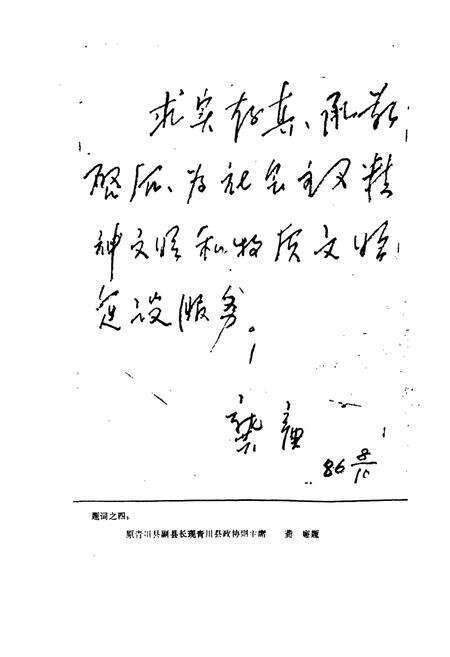 求实存真、承前
启后、为社会主义精
神文明和物质文明
建设服务。
龚
86 8/10
题词之四：
原青川县副县长现青川县政协副主席 龚 题